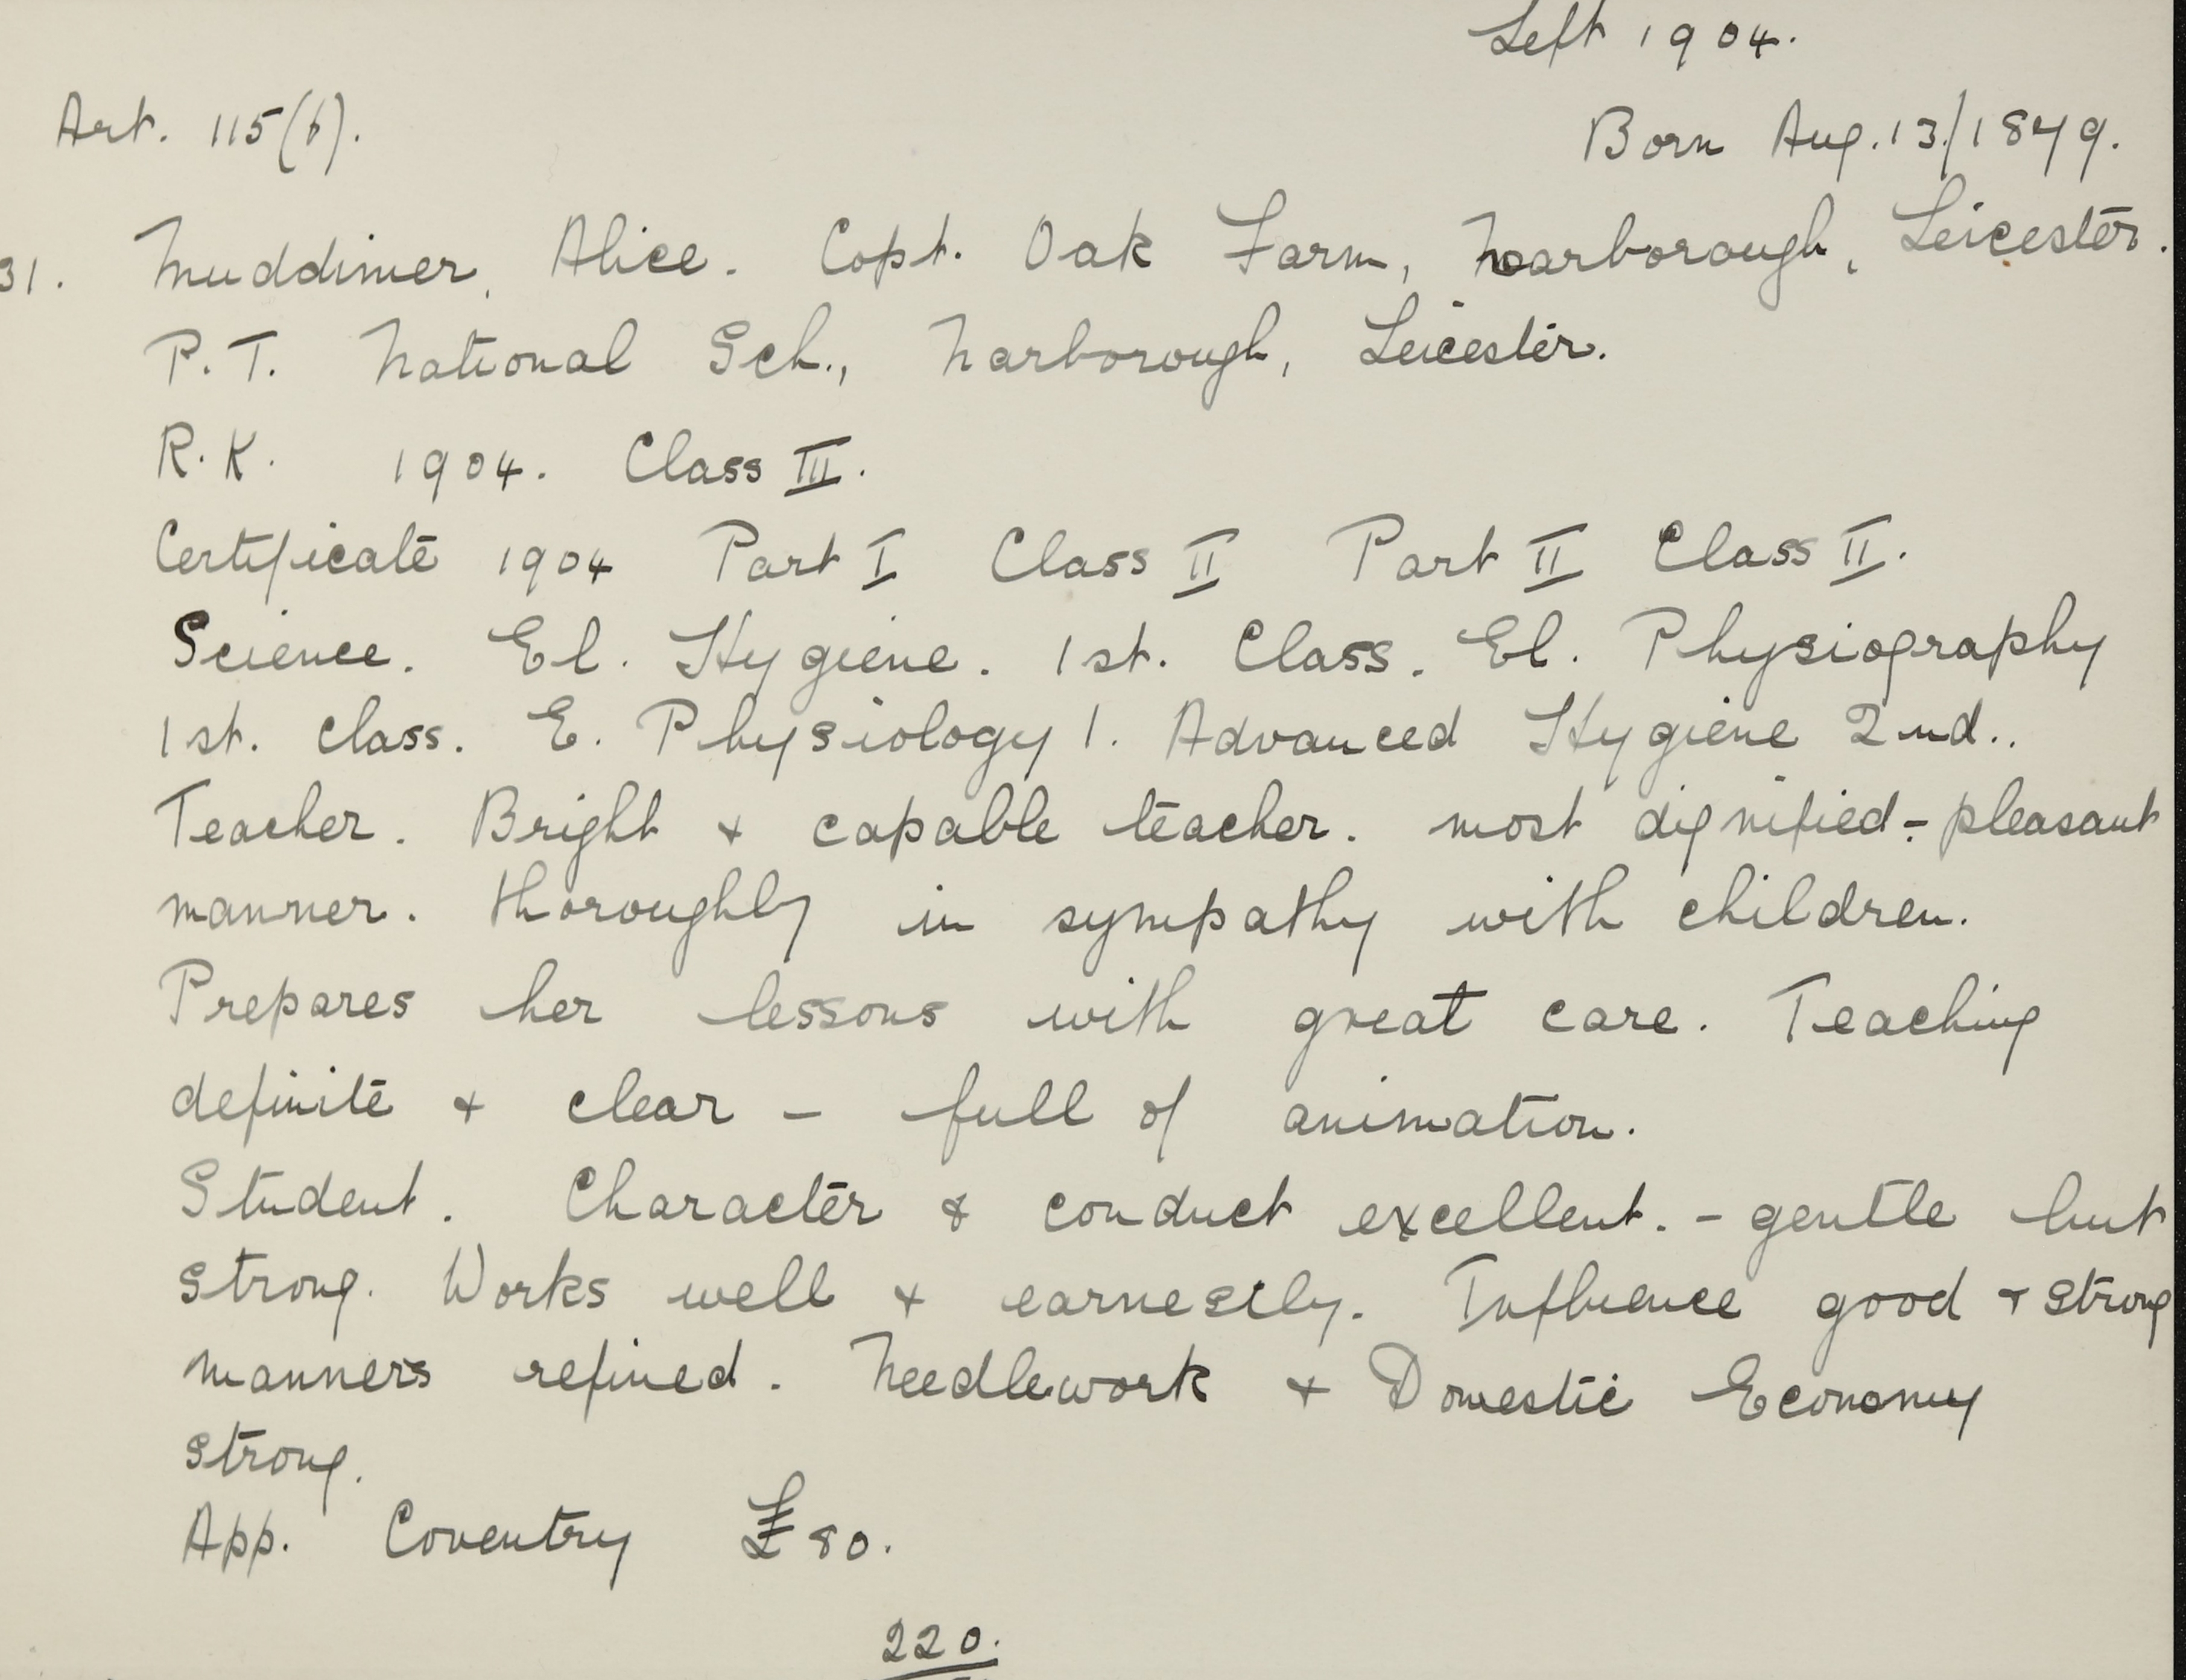 Left 1904.
Art. 115(b).
Born Aug. 13/1879.
31. Muddimer, Alice. Copt. Oak Farm, Narborough, Leicester.
P.T. National Sch., Narborough, Leicester.
R.K. 1904. Class III.
Certificate 1904 Part I Class II Part II Class II.
Science. El. Hygiene. 1st. Class. El. Physiography
1st. class. E. Physiology 1. Advanced Hygiene 2nd..
Teacher. Bright + capable teacher. most dignified - pleasant
manner. thoroughly in sympathy with children.
Prepares her lessons with great care. Teaching
definite + clear - full of animation.
Student. Character & conduct excellent. - gentle but
strong. Works well + earnestly. Influence good + strong
manners refined. Needlework + Domestic Economy
strong.
App. Coventry £80.
220.